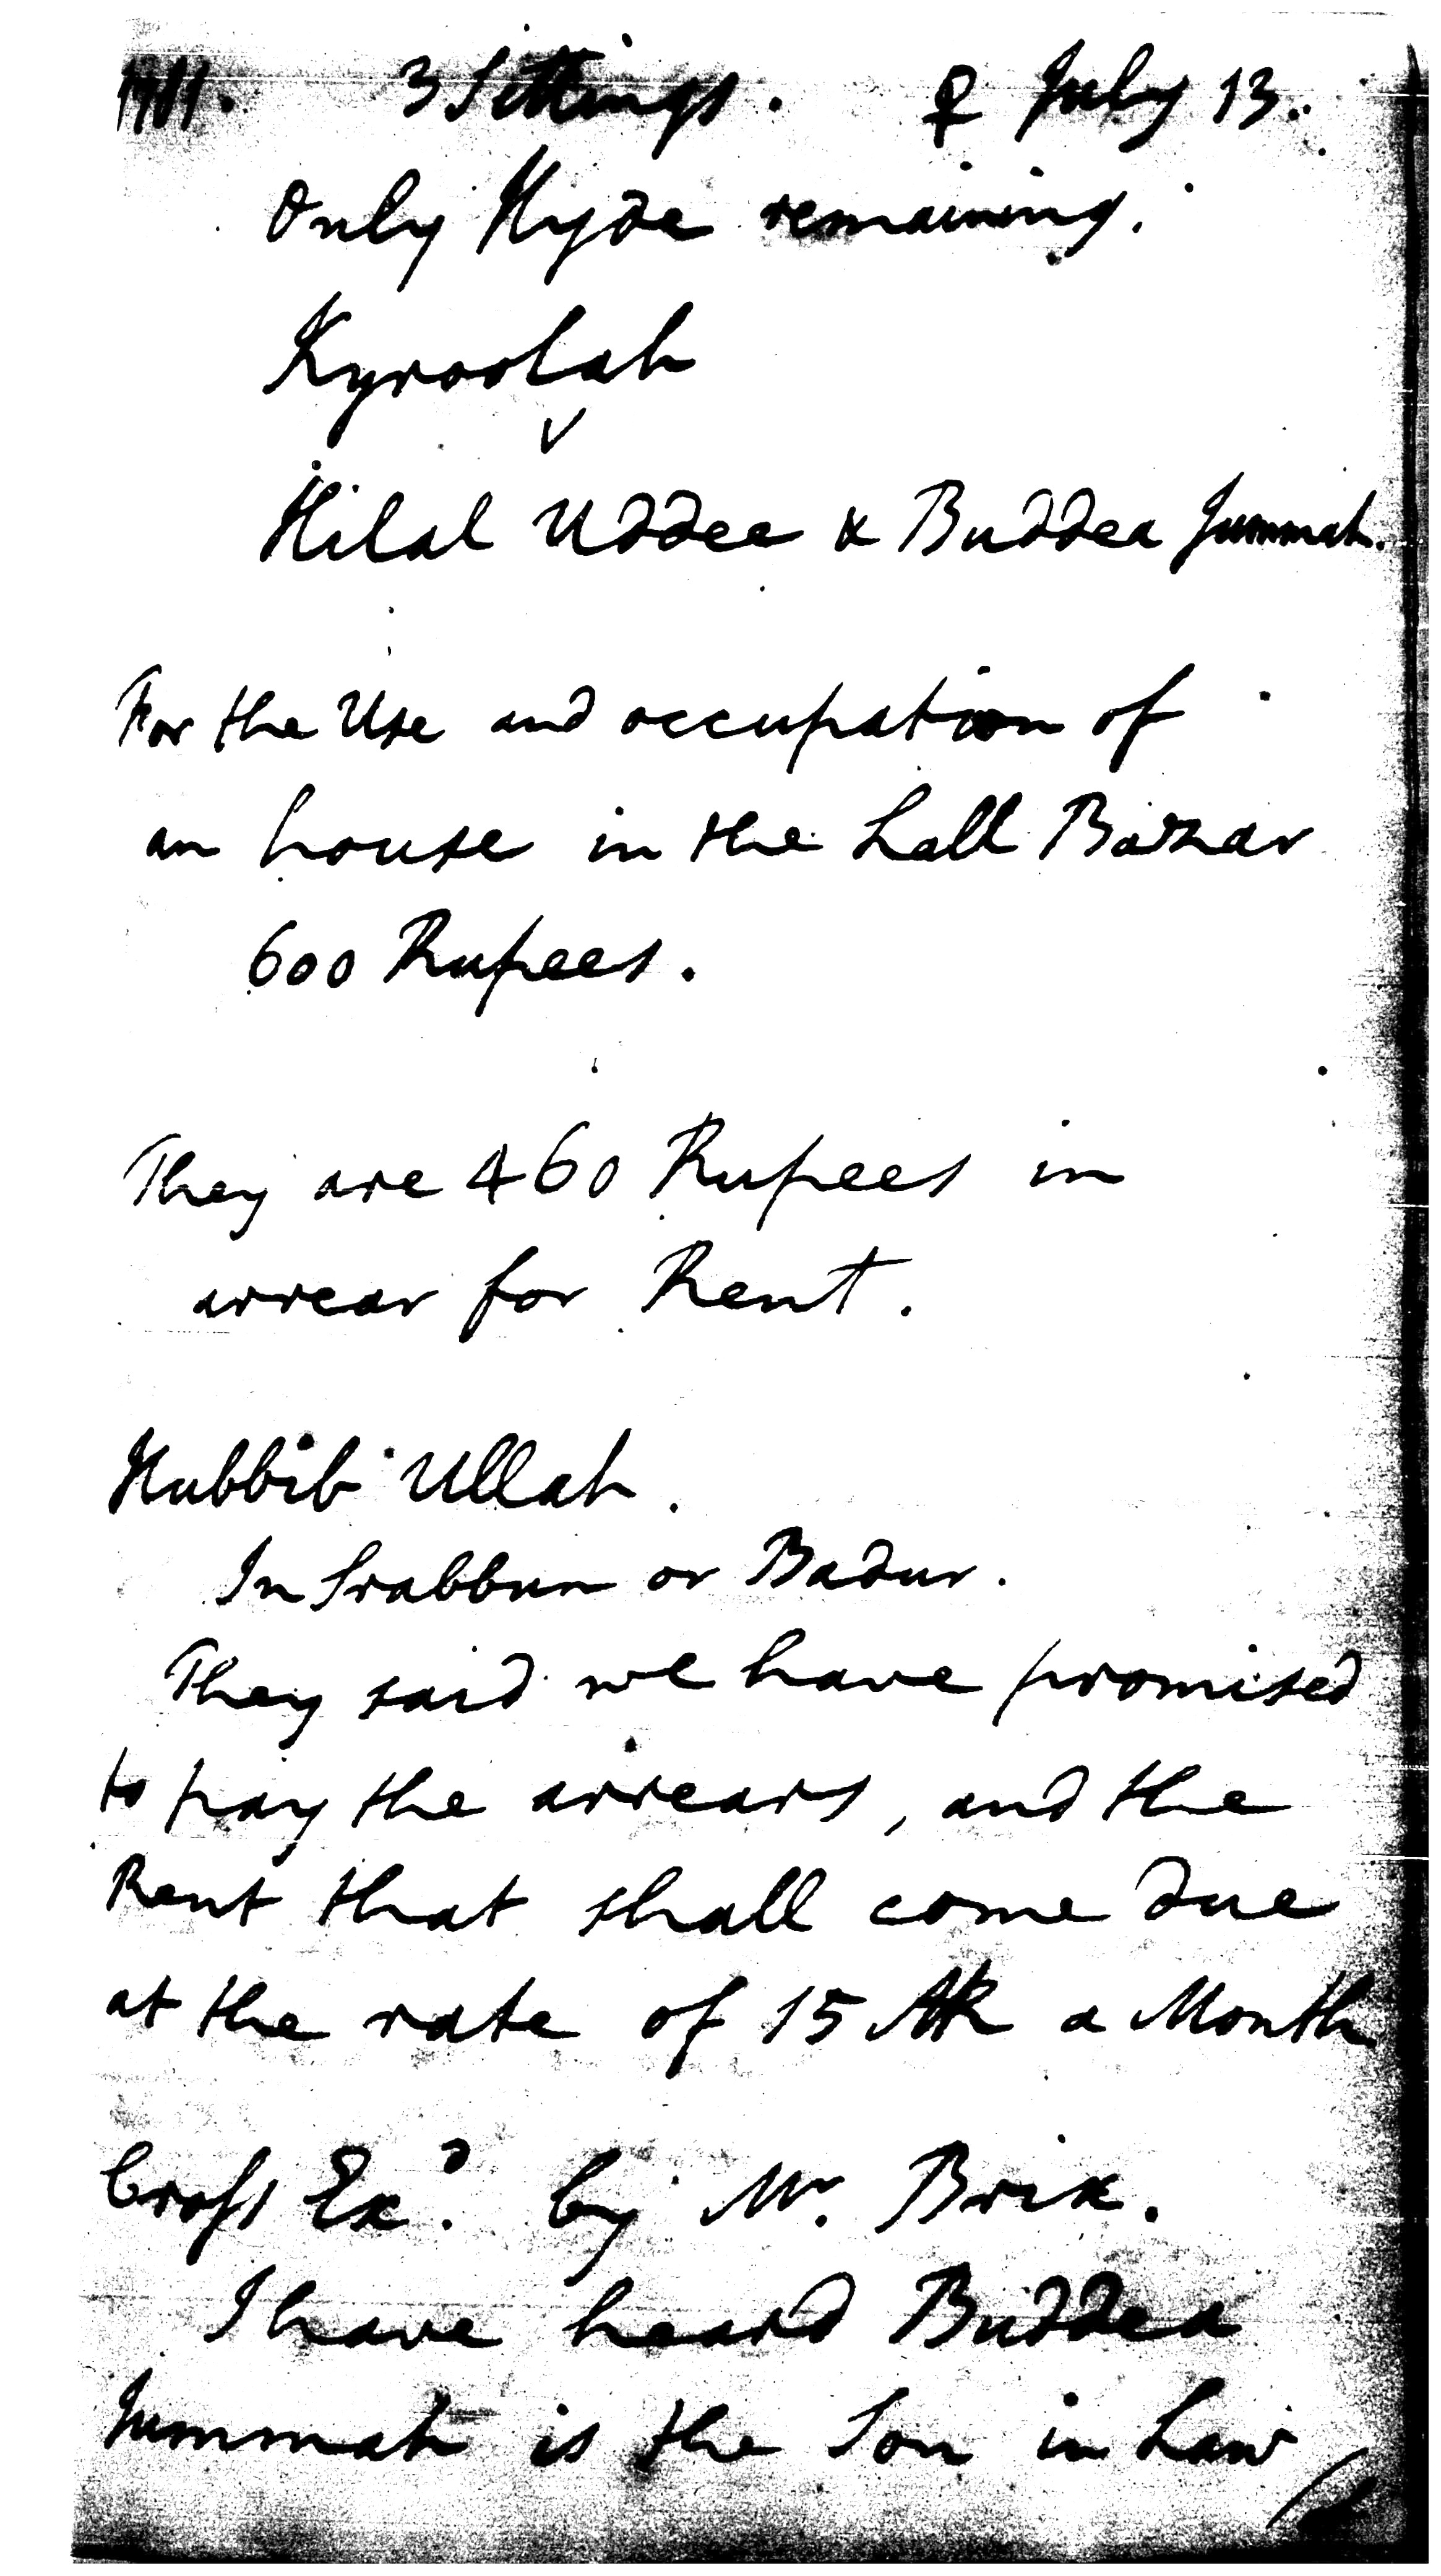 1781. 3 Sittings. ♀ July 13.
Only Hyde remaining.
Kyroolah
v
Hilal Uddee & Buddea Jummah.
For the Use and occupation of
an house in the Lall Bazar
600 Rupees.
They are 460 Rupees in
arrear for Rent.
Hubbib Ullah.
In Srabbun or Badur.
They said we have promised
to pay the arrears, and the
Rent that shall come due
at the rate of 15 AR a Month
Cross Exd. by Mr. Brix.
I have heard Buddea
Jummah is the Son in Law